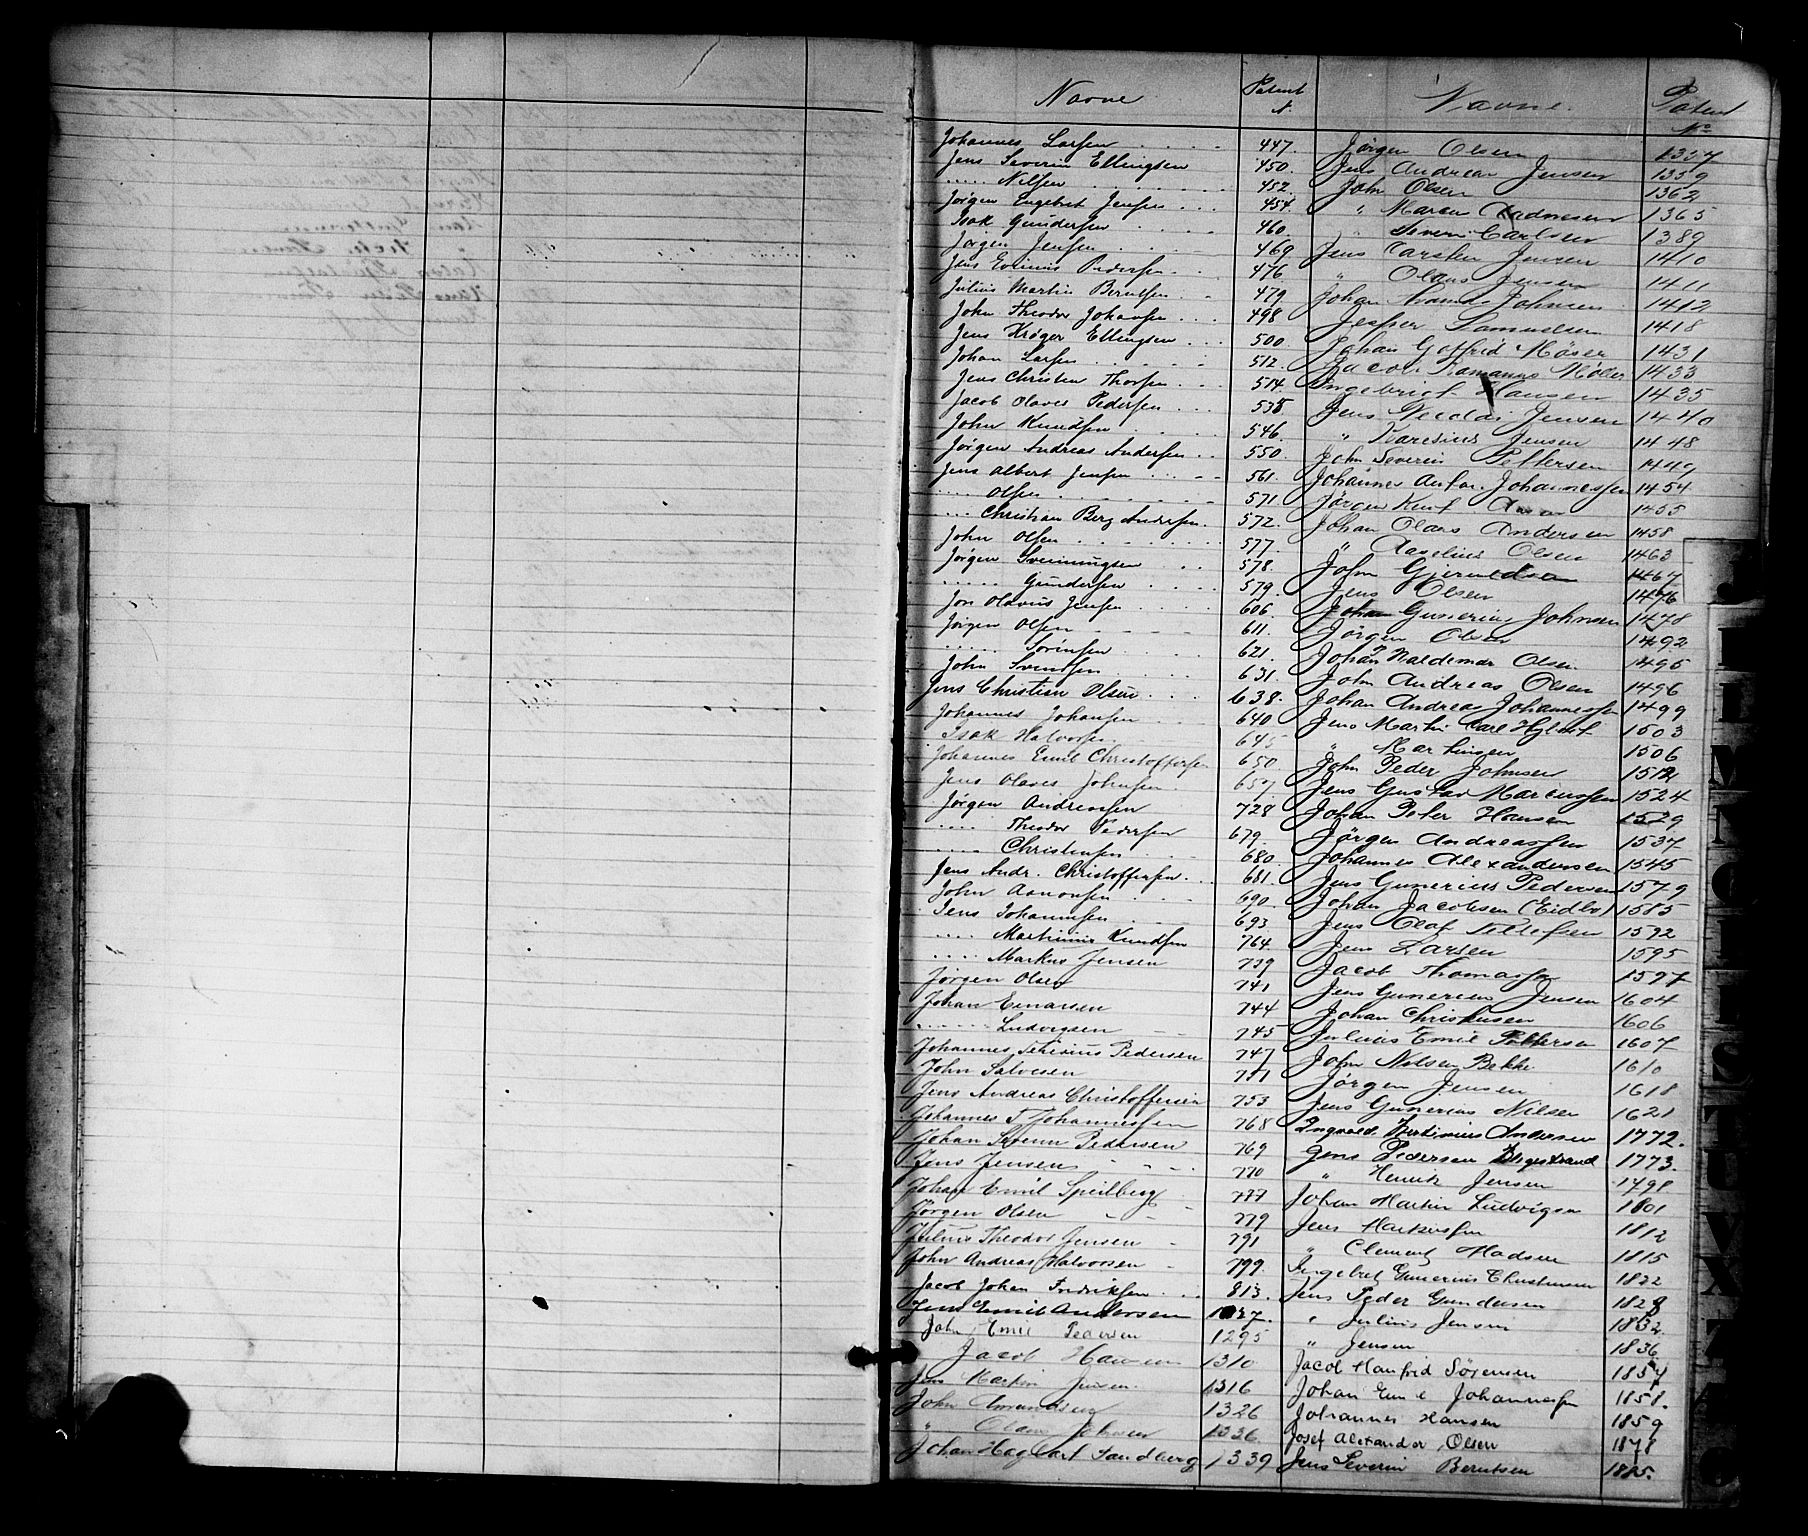 Navne Patent N.
Johannes Larsen 447.
Jens Severin Ellingsen 450.
..... Nilsen 452.
Jørgen Engebret Jensen 454.
Isak Gundersen 460.
Jørgen Jensen 469
Jens Evinus Pedersen 476
Julius Martin Berntsen 479
John Theodor Johansen 498
Jens Krøger Ellingsen 500
Johan Larsen 512.
Jens Christen Thorsen 514
Jacob Olaves Pedersen 535
John Knudsen 546.
Jørgen Andreas Andersen 550
Jens Albert Jensen 561.
.... Olsen 571.
... Christian Berg Andersen. 572.
John Olsen 577.
Jørgen Svenningsen 578.
..... Gundersen 579.
Jon Olavus Jensen 606
Jørgen Olsen 611.
..... Sørensen 621.
John Svendsen 631.
Jens Christian Olsen 638.
Johannes Johansen 640
Isak Halvorsen 645
Johannes Emil Christoffersen 650
Jens Olaves Johnsen 657
Jørgen Andreassen 728
.... Theodor Pedersen 679.
..... Christensen 680.
Jens Andr. Christoffersen 681.
John Aanonsen 690
Jens Johannesen 693
.... Martinius Knudsen 764
.... Markus Jensen 739
Jørgen Olsen 741
Johan Einarsen 744
...... Ludvigsen 745
Johannes Pedersen 747
John Salvesen 751
Jens Andreas Christoffersen 753
Johannes T. Johannessen 768
Johan Severin Pedersen 769
Jens Jensen 770
Johan Emil Speilberg 777
Jørgen Olsen 779
Julius Theodor Jensen 791
John Andreas Halvorsen 799.
Jacob Johan Fredriksen 813.
Jens Emil Andersen
John Emil Pedersen 1295
Jacob Hansen 1310
Jens Martin Jensen 1316
John Amundsen 1326
" Johnsen 1336
Johan Hagbart Sandberg 1339
Navne. Patent No
Jørgen Olsen 1357
Jens Andreas Jensen 1359
John Olsen 1362
" Marcus Aadnesen 1365
" Severin Carlsen 1389
Jens Carsten Jensen 1410
" Olaus Jensen 1411
Johan Johnsen 1412
Jesper Samuelsen 1418
Johan Gotfrid Møser 1431
Jacob Romanus Møller 1433
Ingebrigt Hansen 1435
Jens Jensen 1440
" Karesius Jensen 1448
John Severin Pettersen 1449
Johannes Anton Johannessen 1454
Jørgen Knut 1455
Johan Olaus Andersen 1458
" Aaselius Olsen 1463
John Gjeruldsen 1467
Jens Olsen 1476
Johan Gunerius Johnsen 1478
Jørgen Olsen 1492
Johan Valdemar Olsen 1495
John Andreas Olsen 1496
Johan Andreas Johannessen 1499
Jens Martin Carl 1503
" Martinsen 1506
John Peder Johnsen 1512
Jens Gustav Marcussen 1524
Johan Peter Hansen 1529
Jørgen Andreassen 1537
Johannes Alexandersen 1545
Jens Gunerius Pedersen 1579
Johan Jacobsen (Eidbo) 1585
Jens Olaf Tellefsen 1592
Jens Larsen 1595
Jacob Thomassen 1597
Jens Gunerius Jensen 1604
Johan Christensen 1606
Julius Emil Pettersen 1607
John Nilsen Bekke 1610
Jørgen Jensen 1618
Jens Gunerius Nilsen 1621
Ingvald Andersen 1772.
Jens Pedersen 1773.
" Henrik Jensen 1798
Johan Martin Ludvigsen 1801
Jens Markussen 1812
" Clement Madsen 1815
Ingebret Gunerius Christensen 1822
Jens Peder Gundersen 1828
" Julius Jensen 1832
" Jensen 1836
Jacob Hanfrid Sørensen 1854
Johan Emil Johannessen 1858.
Johannes Hansen 1859
Josef Alexander Olsen 1878
Jens Severin Berntsen 1885.